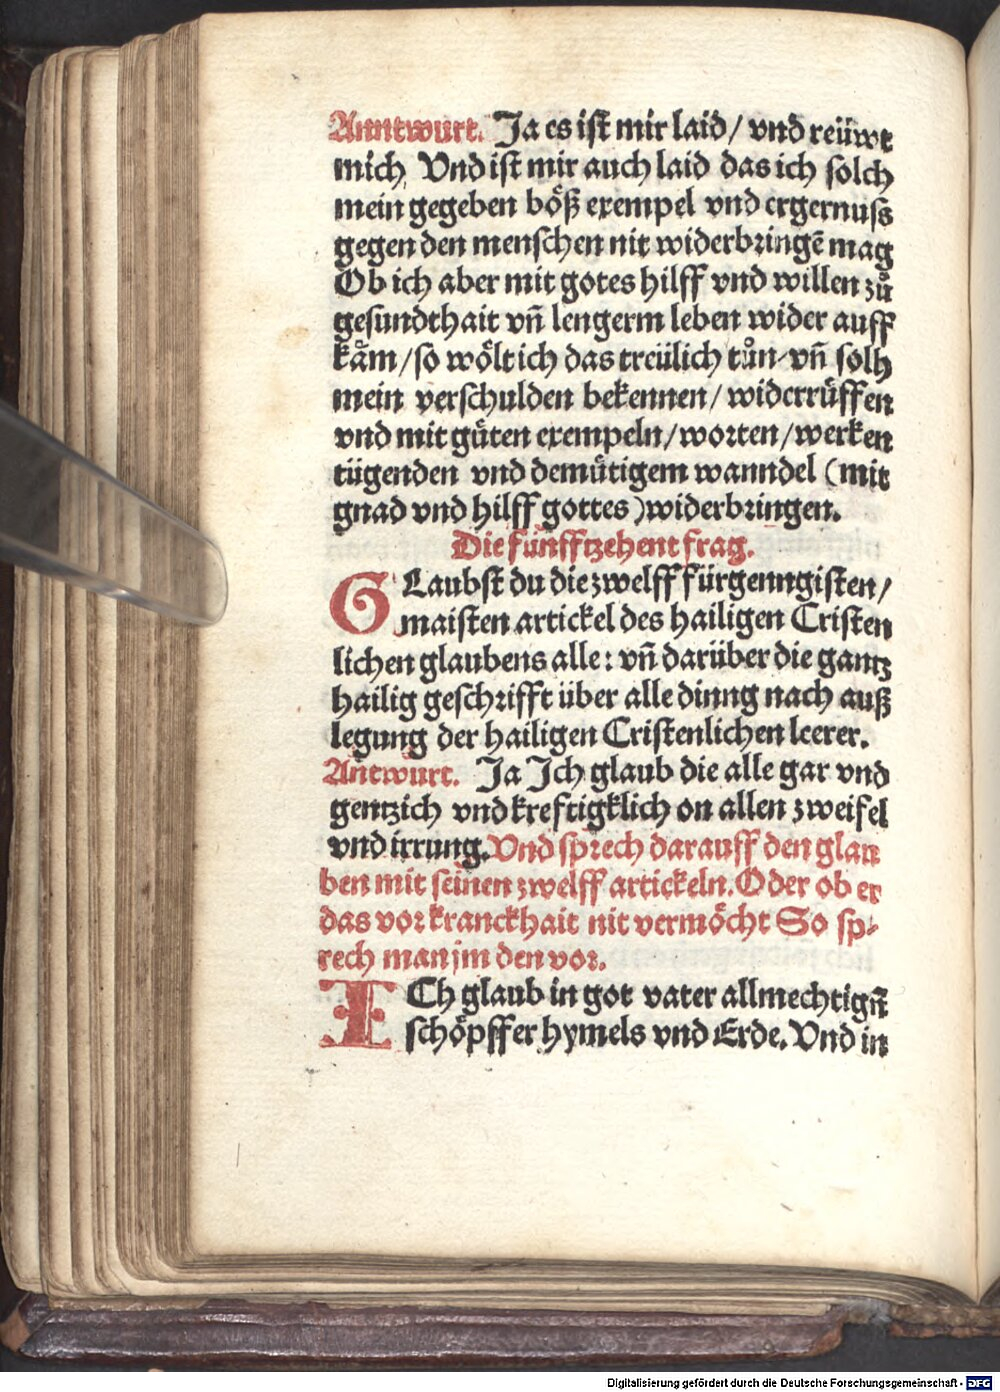 Anntwurt. Ja es ist mir laid / vnd reüwt
mich, Vnd ist mir auch laid das ich solch
mein gegeben böß exempel vnd ergernuss
gegen den menschen nit widerbringē mag
Ob ich aber mit gotes hilff vnd willen zů
gesundthait vn̄ lengerm leben wider auff
kåm / so wölt ich das treülich tůn / vn̄ solh
mein verschulden bekennen / widerrüffen
vnd mit gůten exempeln / worten / werken
tügenden vnd demütigem wanndel (mit
gnad vnd hilff gottes) widerbringen.
Die fünfftzehent frag.
GLaubst du die zwelff fürgenngisten /
maisten artickel des hailigen Cristen
lichen glaubens alle : vn̄ darüber die gantz
hailig geschrifft über alle dinng nach auß
legung der hailigen Cristenlichen leerer.
Antwurt. Ja Ich glaub die alle gar vnd
gentzich vnd kreftigklich on allen zweifel
vnd irrung. Vnd sprech darauff den glau
ben mit seinen zwelff artickeln. Oder ob er
das vor kranckhait nit vermöcht So sp-
rech man jm den vor.
ICh glaub in got vater allmechtign̄
schöpffer hymels vnd Erde. Vnd in
Digitalisierung gefördert durch die Deutsche Forschungsgemeinschaft - DFG